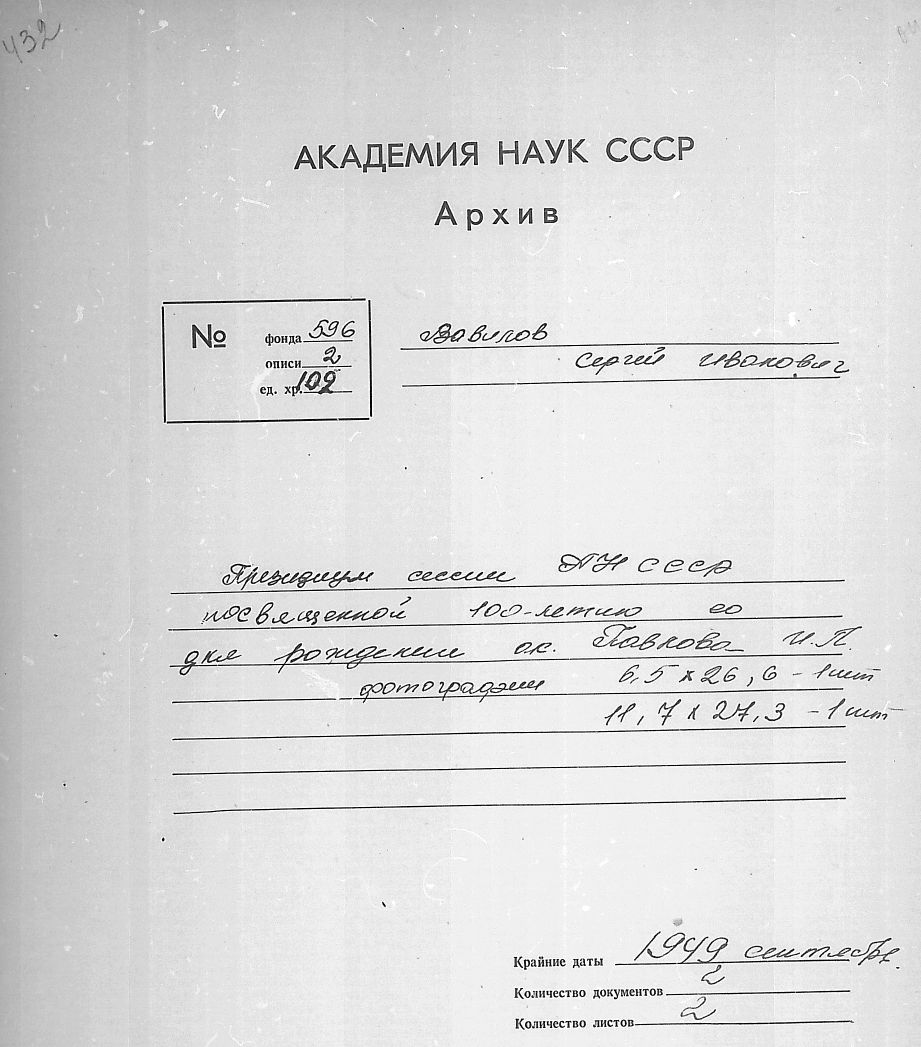 432
АКАДЕМИЯ НАУК СССР
Архив
№
фонда 596
описи 2
ед. хр. 109
Вавилов
Сергей Иванович
Президиум сессии АН СССР
посвященной 100-летию со
дня рождения ак. Павлова И.П.
фотографии 6,5 x 26,6 - 1 шт
11,7 x 27,3 - 1 шт
Крайние даты 1949 сентябрь.
Количество документов 2
Количество листов 2